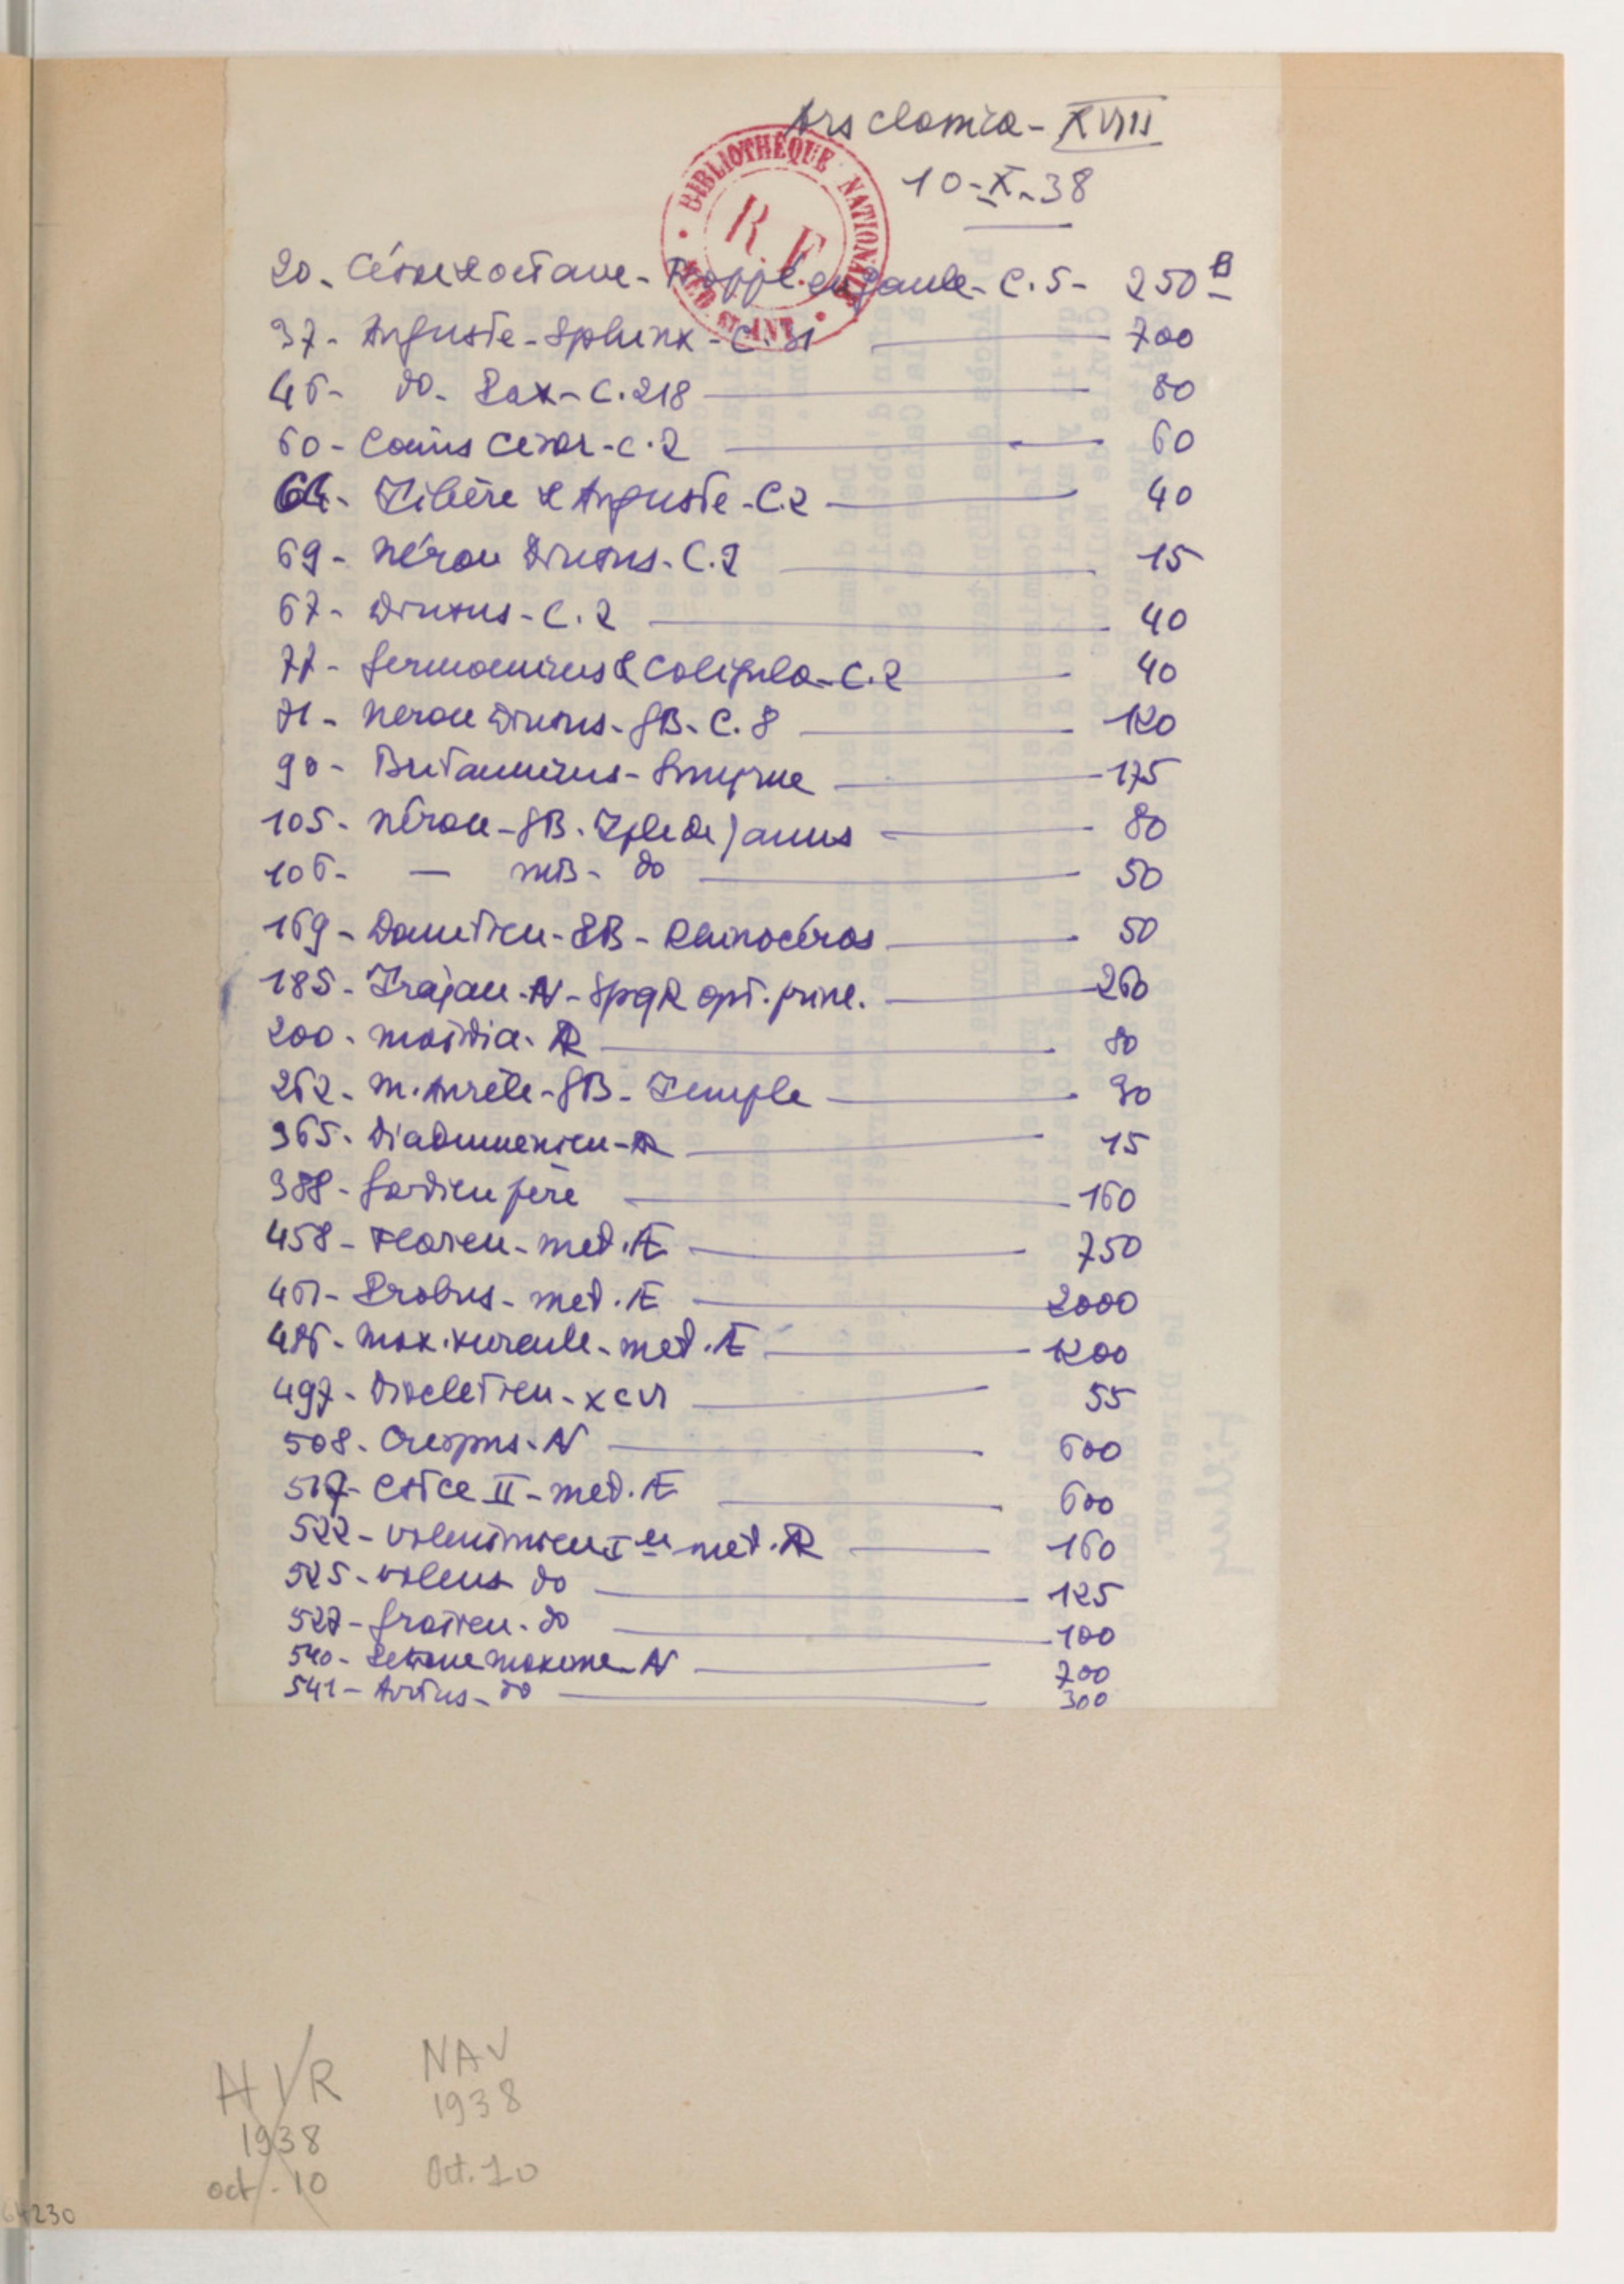 Ars Classica - XVIII
10-X-38
BIBLIOTHÈQUE NATIONALE
R.F.
MÉD. ET ANT.
20. César & Octave - Frappé en Gaule - C. 5 - 250
37 - Auguste - Sphinx - C. 31 700
46 - do. Pax - C. 218 80
60 - Caius César - C. 2 60
64 - Tibère & Auguste - C. 2 40
69 - Néron Drusus - C. 2 15
67 - Drusus - C. 2 40
77 - Germanicus & Caligula - C. 2 40
71 - Neron Drusus - GB - C. 8 120
90 - Britannicus - Smyrne 175
105 - Néron - GB. Tple de Janus 80
106 - — MB - do 50
169 - Domitien - PB - Rhinocéros 50
185 - Trajan - AV - SPQR opt. princ. 260
200 - Matidia - AR 80
262 - M. Aurèle - GB - Temple 90
365 - Diaduménien - AR 15
388 - Gordien père 160
458 - Florien - med. Æ 750
461 - Probus - med. Æ 2000
486 - Max. Hercule - med. Æ 1200
497 - Diocletien - XCVI 55
508 - Crispus - AV 600
517 - Cstce II - med. Æ 600
522 - Valentinien Ier med. AR 160
525 - Valens do 125
527 - Gratien - do 100
540 - Petrone Maxime - AV 700
541 - Avitus - do 300
AIR
1938
oct. 10
NAV
1938
Oct. 10
64230